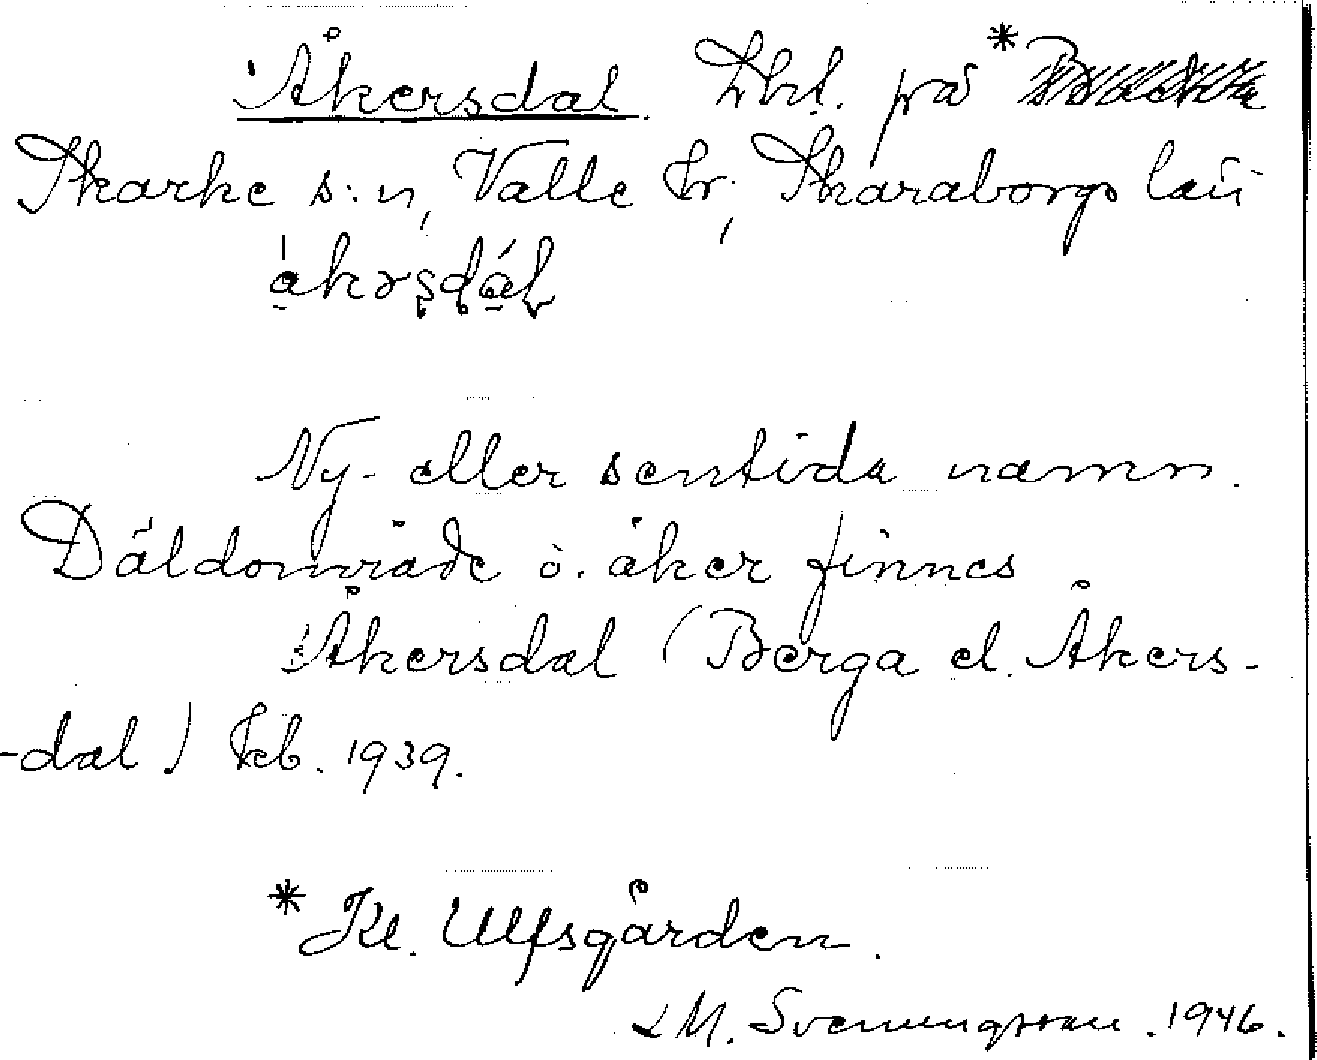 Åkersdal. Lht. på *
Skarke s:n, Valle hr, Skaraborgs län
Ny- eller sentida namn.
Däldområde o. åker finnes
Åkersdal (Berga el. Åkers-
-dal) Jeb. 1939.
* Kl. Ulfsgården.
LM. Svenungsson. 1946.